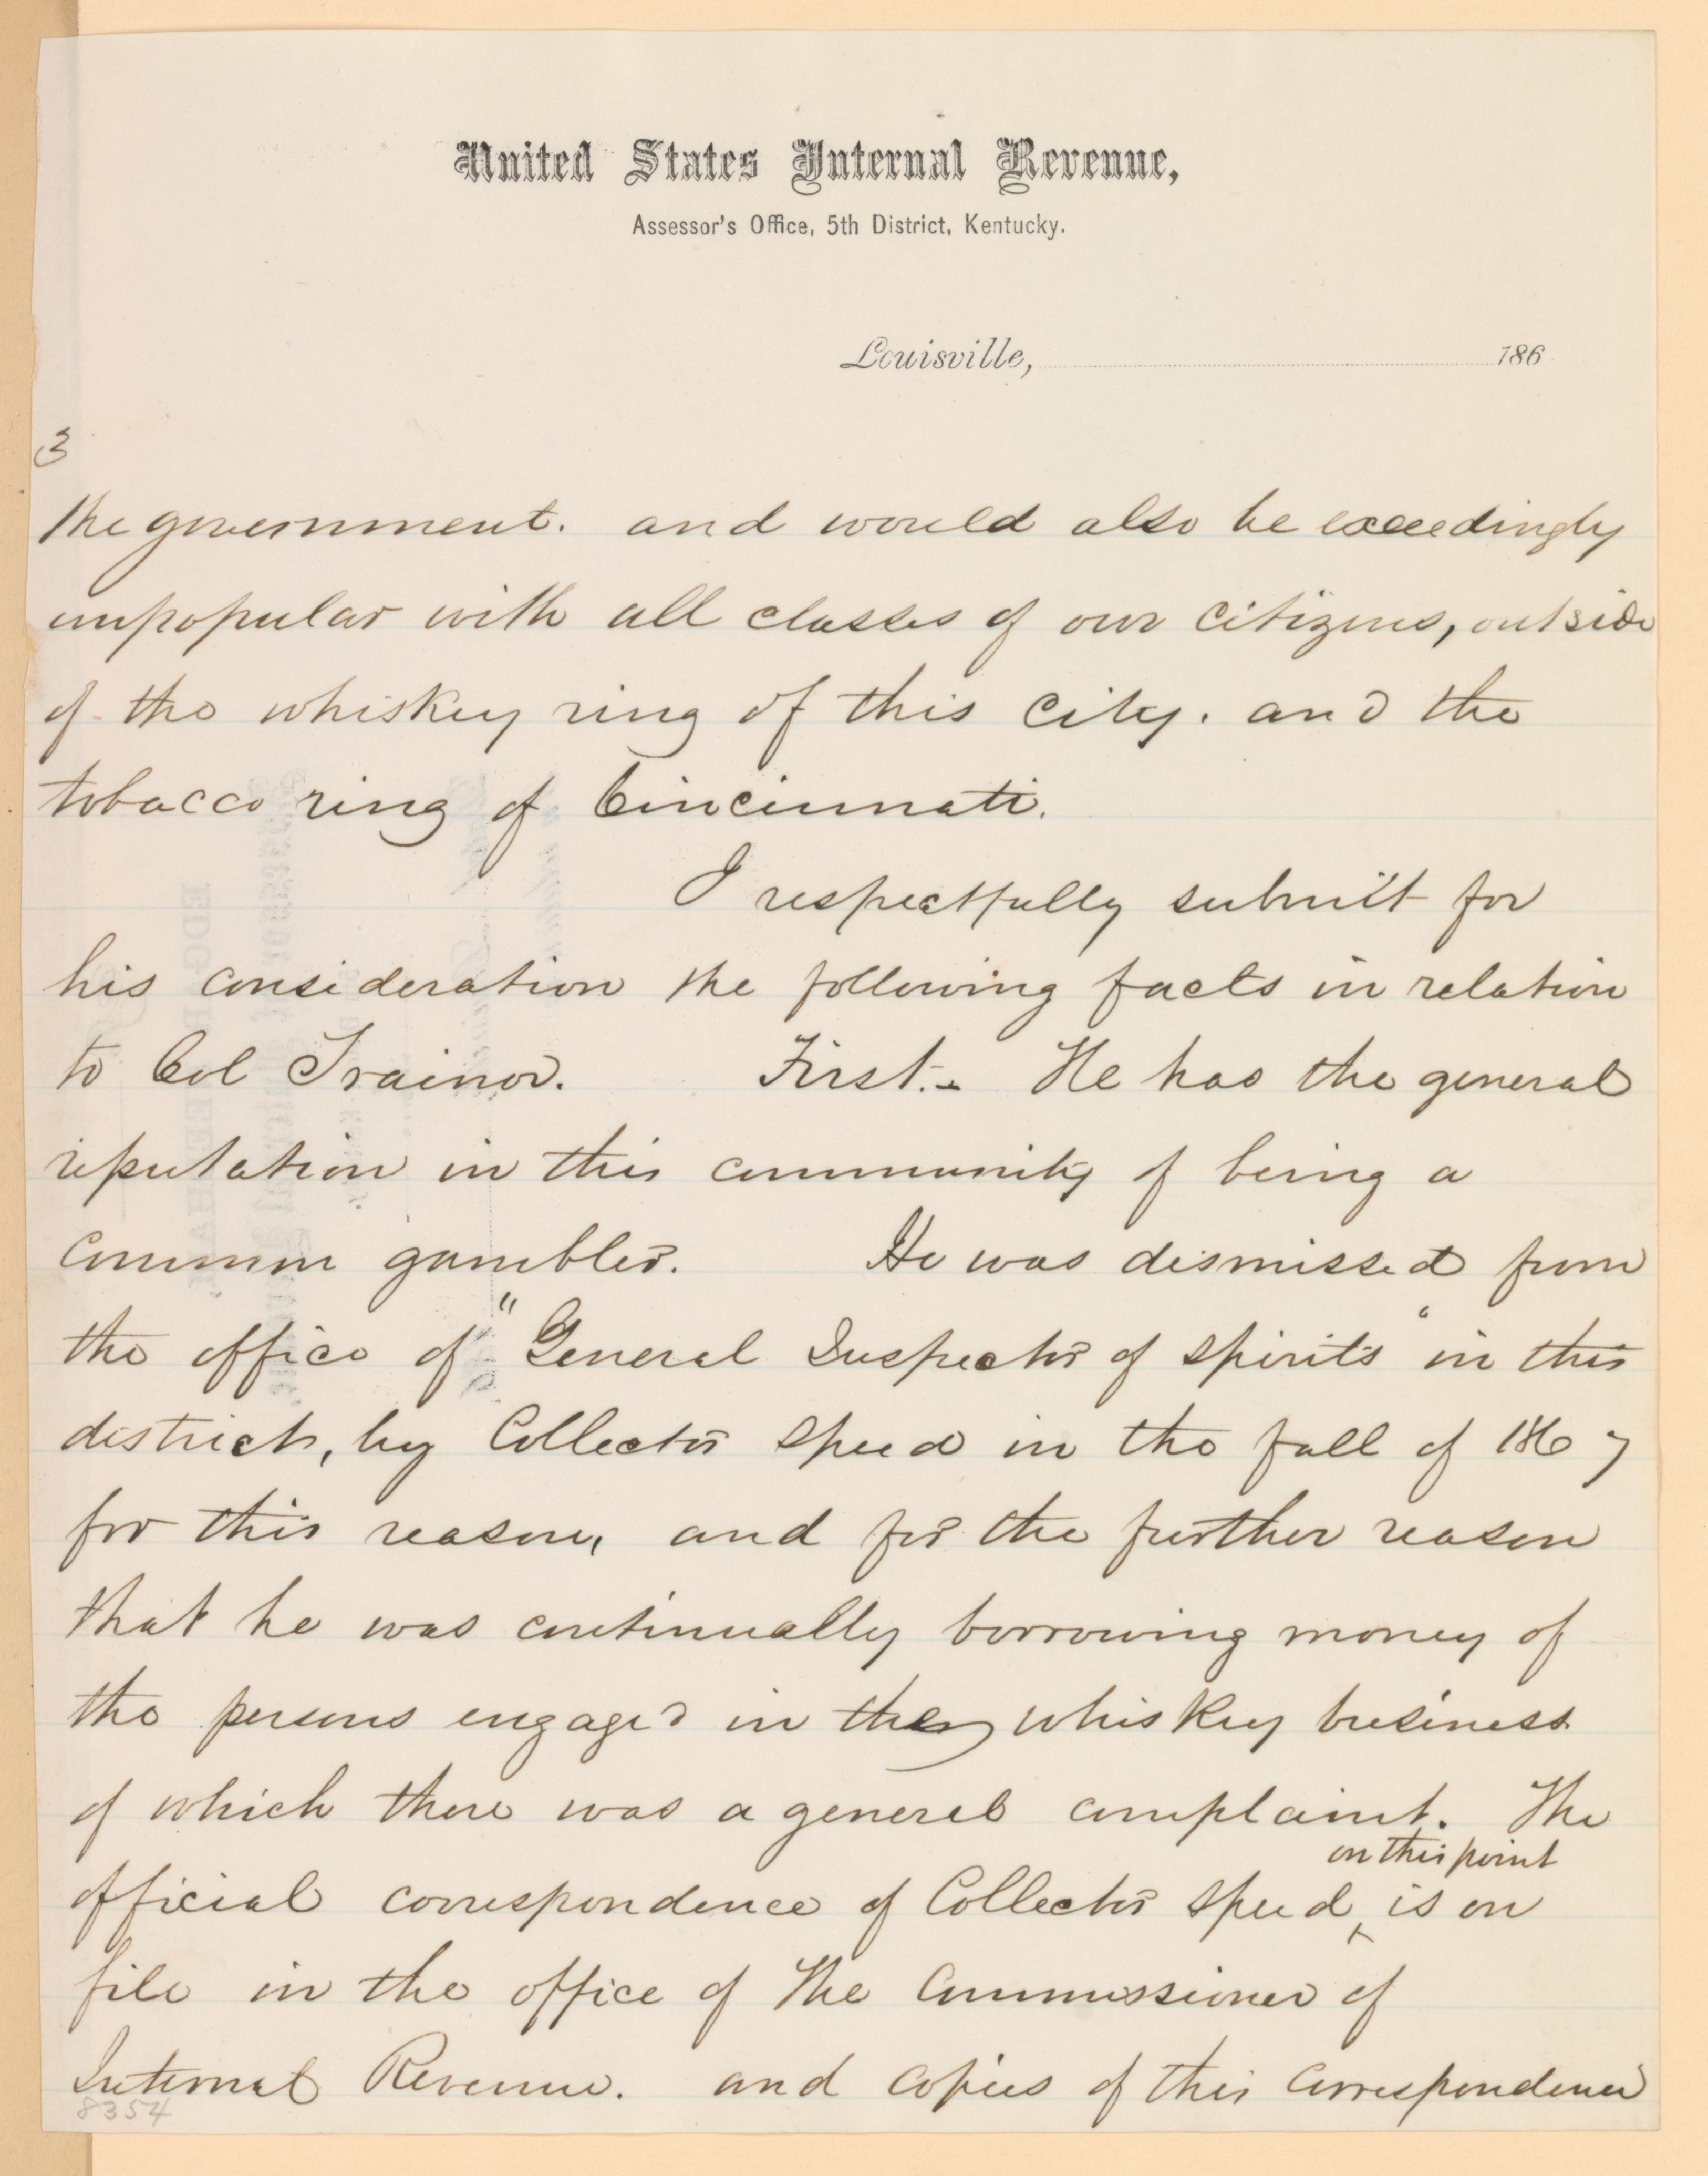 United States Internal Revenue,
Assessor's Office, 5th District, Kentucky.
Louisville, 186
3
the government. and would also be exceedingly
unpopular with all classes of our citizens, outside
of the whiskey ring of this city. and the
tobacco ring of Cincinnati.
I respectfully submit for
his consideration the following facts in relation
to Col Trainor. First.- He has the general
reputation in this community of being a
common gambler. He was dismissed from
the office of "General Inspector of spirits" in this
district, by Collector Speed in the fall of 1867
for this reason, and for the further reason
that he was continually borrowing money of
the persons engaged in the whiskey business
of which there was a general complaint. The
on this point
official correspondence of Collector Speed, is on
file in the office of the Commissioner of
Internal Revenue. and copies of this correspondence
8354